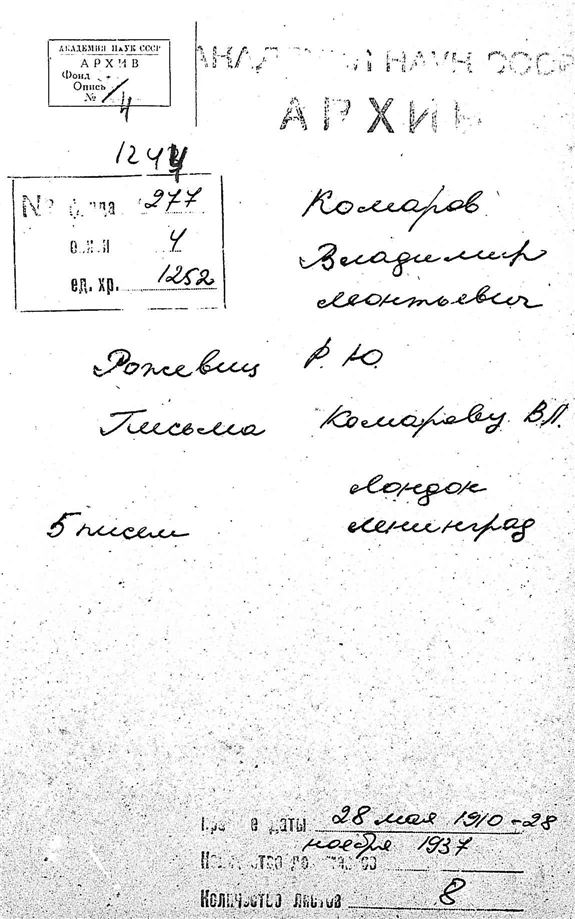 АКАДЕМИЯ НАУК СССР
АРХИВ
Фонд
Опись
№ /4
АКАДЕМИЯ НАУК СССР
АРХИВ
1244
№ фонда 277
описи 4
ед. хр. 1252
Комаров
Владимир
Леонтьевич
Рожевиц Р. Ю.
Письма Комарову В.Л.
Лондон
5 писем Ленинград
Крайние даты 28 мая 1910 - 28
ноября 1937
Количество
Количество листов 8